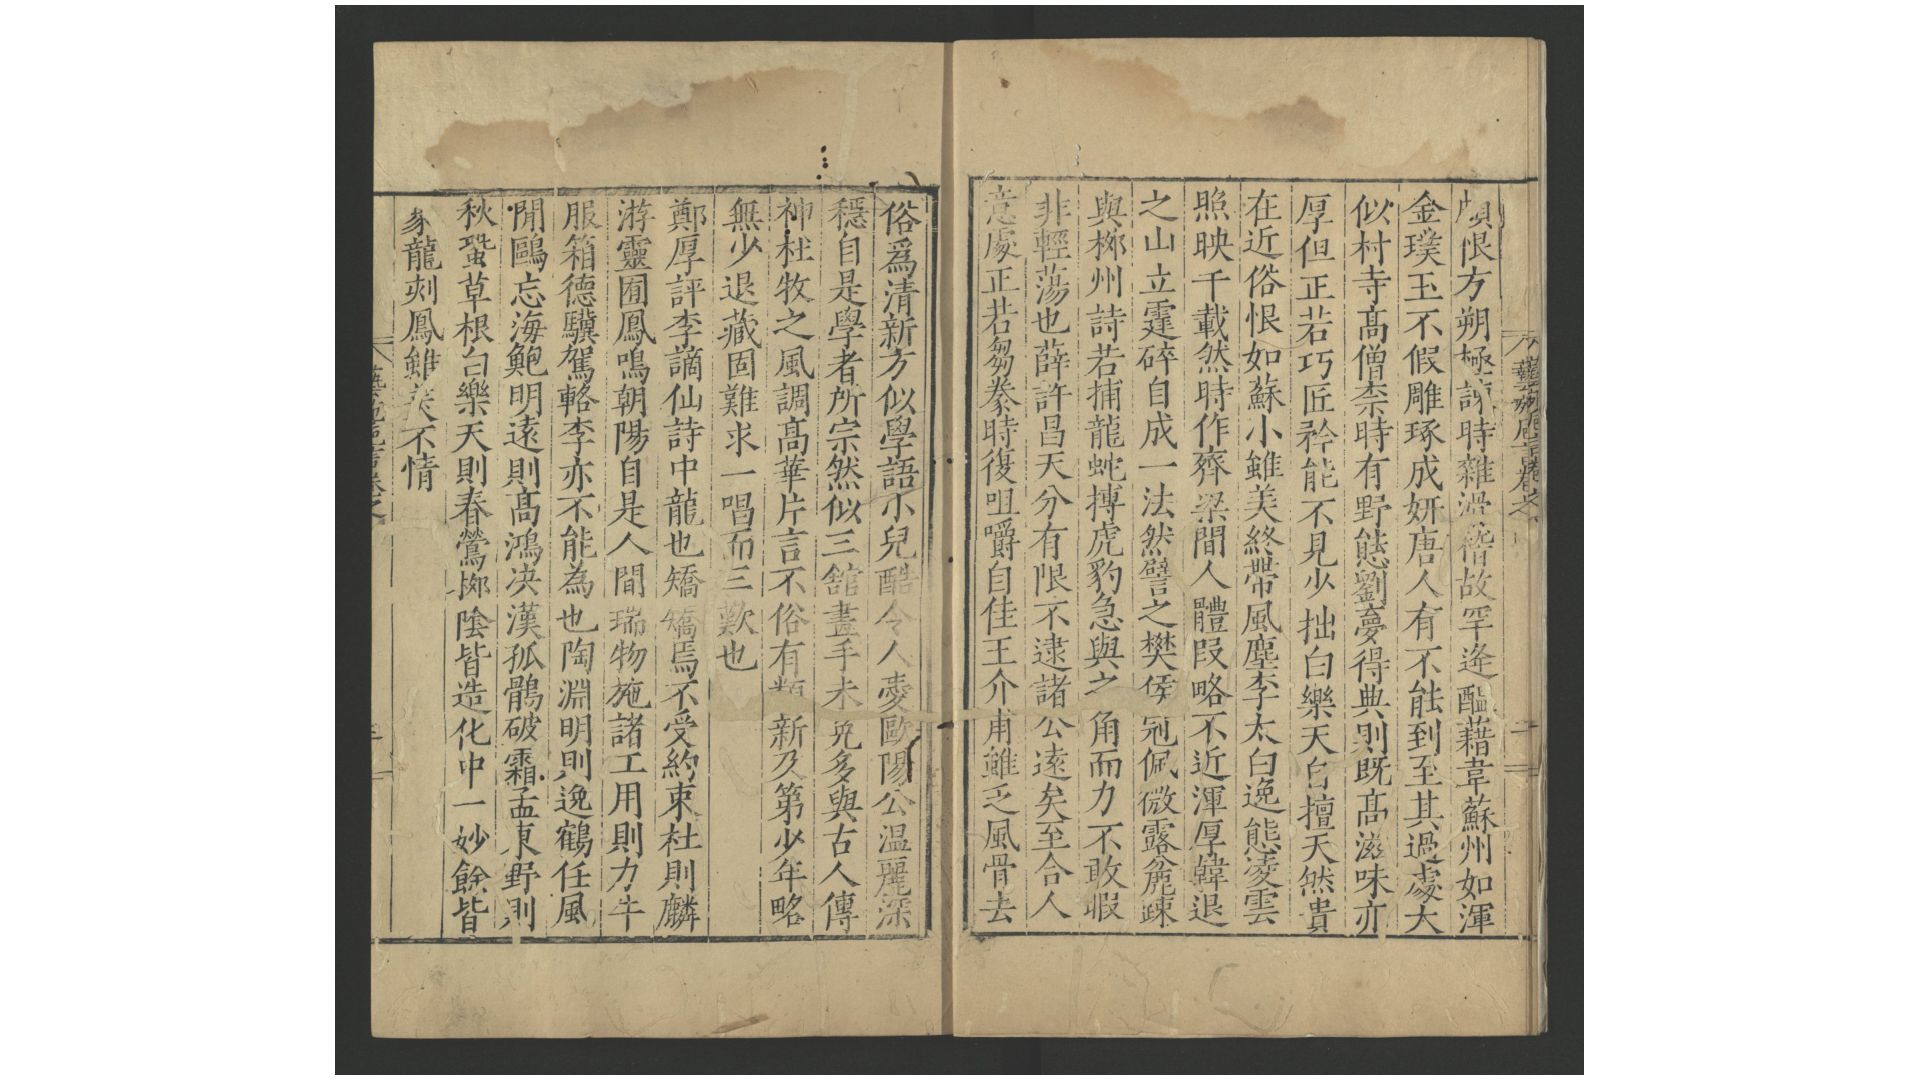 頗恨方朔極諫時雜滑稽故罕逢醞藉韋蘇州如渾
金璞玉不假雕琢成妍唐人有不能到至其過處大
似村寺高僧柰時有野態劉夢得典則既高滋味亦
厚但正若巧匠矜能不見少拙白樂天自擅天然貴
在近俗恨如蘇小雖美終帶風塵李太白逸態凌雲
照映千載然時作齊梁間人體叚略不近渾厚韓退
之山立霆碎自成一法然譬之樊侯冠佩微露麄疎
與栁州詩若捕龍蛇搏虎豹急與之角而力不敢暇
非輕蕩也薛許昌天分有限不逮諸公遠矣至合人
意處正若芻豢時復咀嚼自佳王介甫雖乏風骨去
俗爲清新方似學語小兒酷令人愛歐陽公温麗深
穩自是學者所宗然似三舘畫手未免多與古人傳
神杜牧之風調髙華片言不俗有類新及第少年略
無少退藏固難求一唱而三歎也
鄭厚評李謫仙詩中龍也矯矯焉不受約束杜則麟
游靈囿鳳鳴朝陽自是人間瑞物施諸工用則力牛
服箱德驥駕輅李亦不能為也陶淵明則逸鶴任風
閒鷗忘海鮑明遠則髙鴻决漢孤鶻破霜孟東野則
秋蛩草根白樂天則春鶯栁陰皆造化中一妙餘皆
象龍刻鳳雖美不情